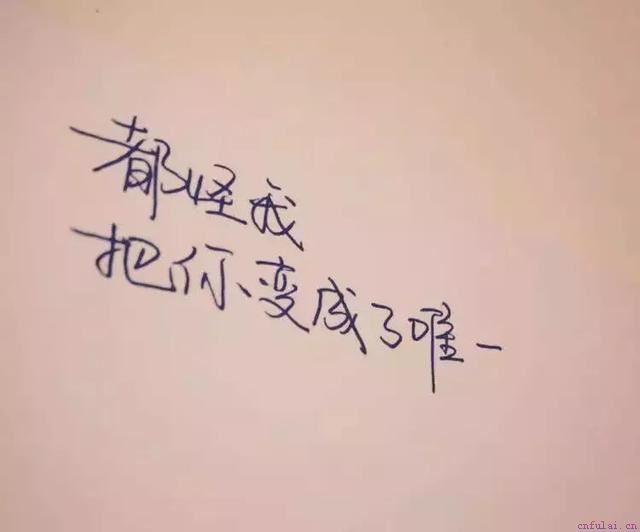 都怪我
把你变成了唯一
cnfulai.cn